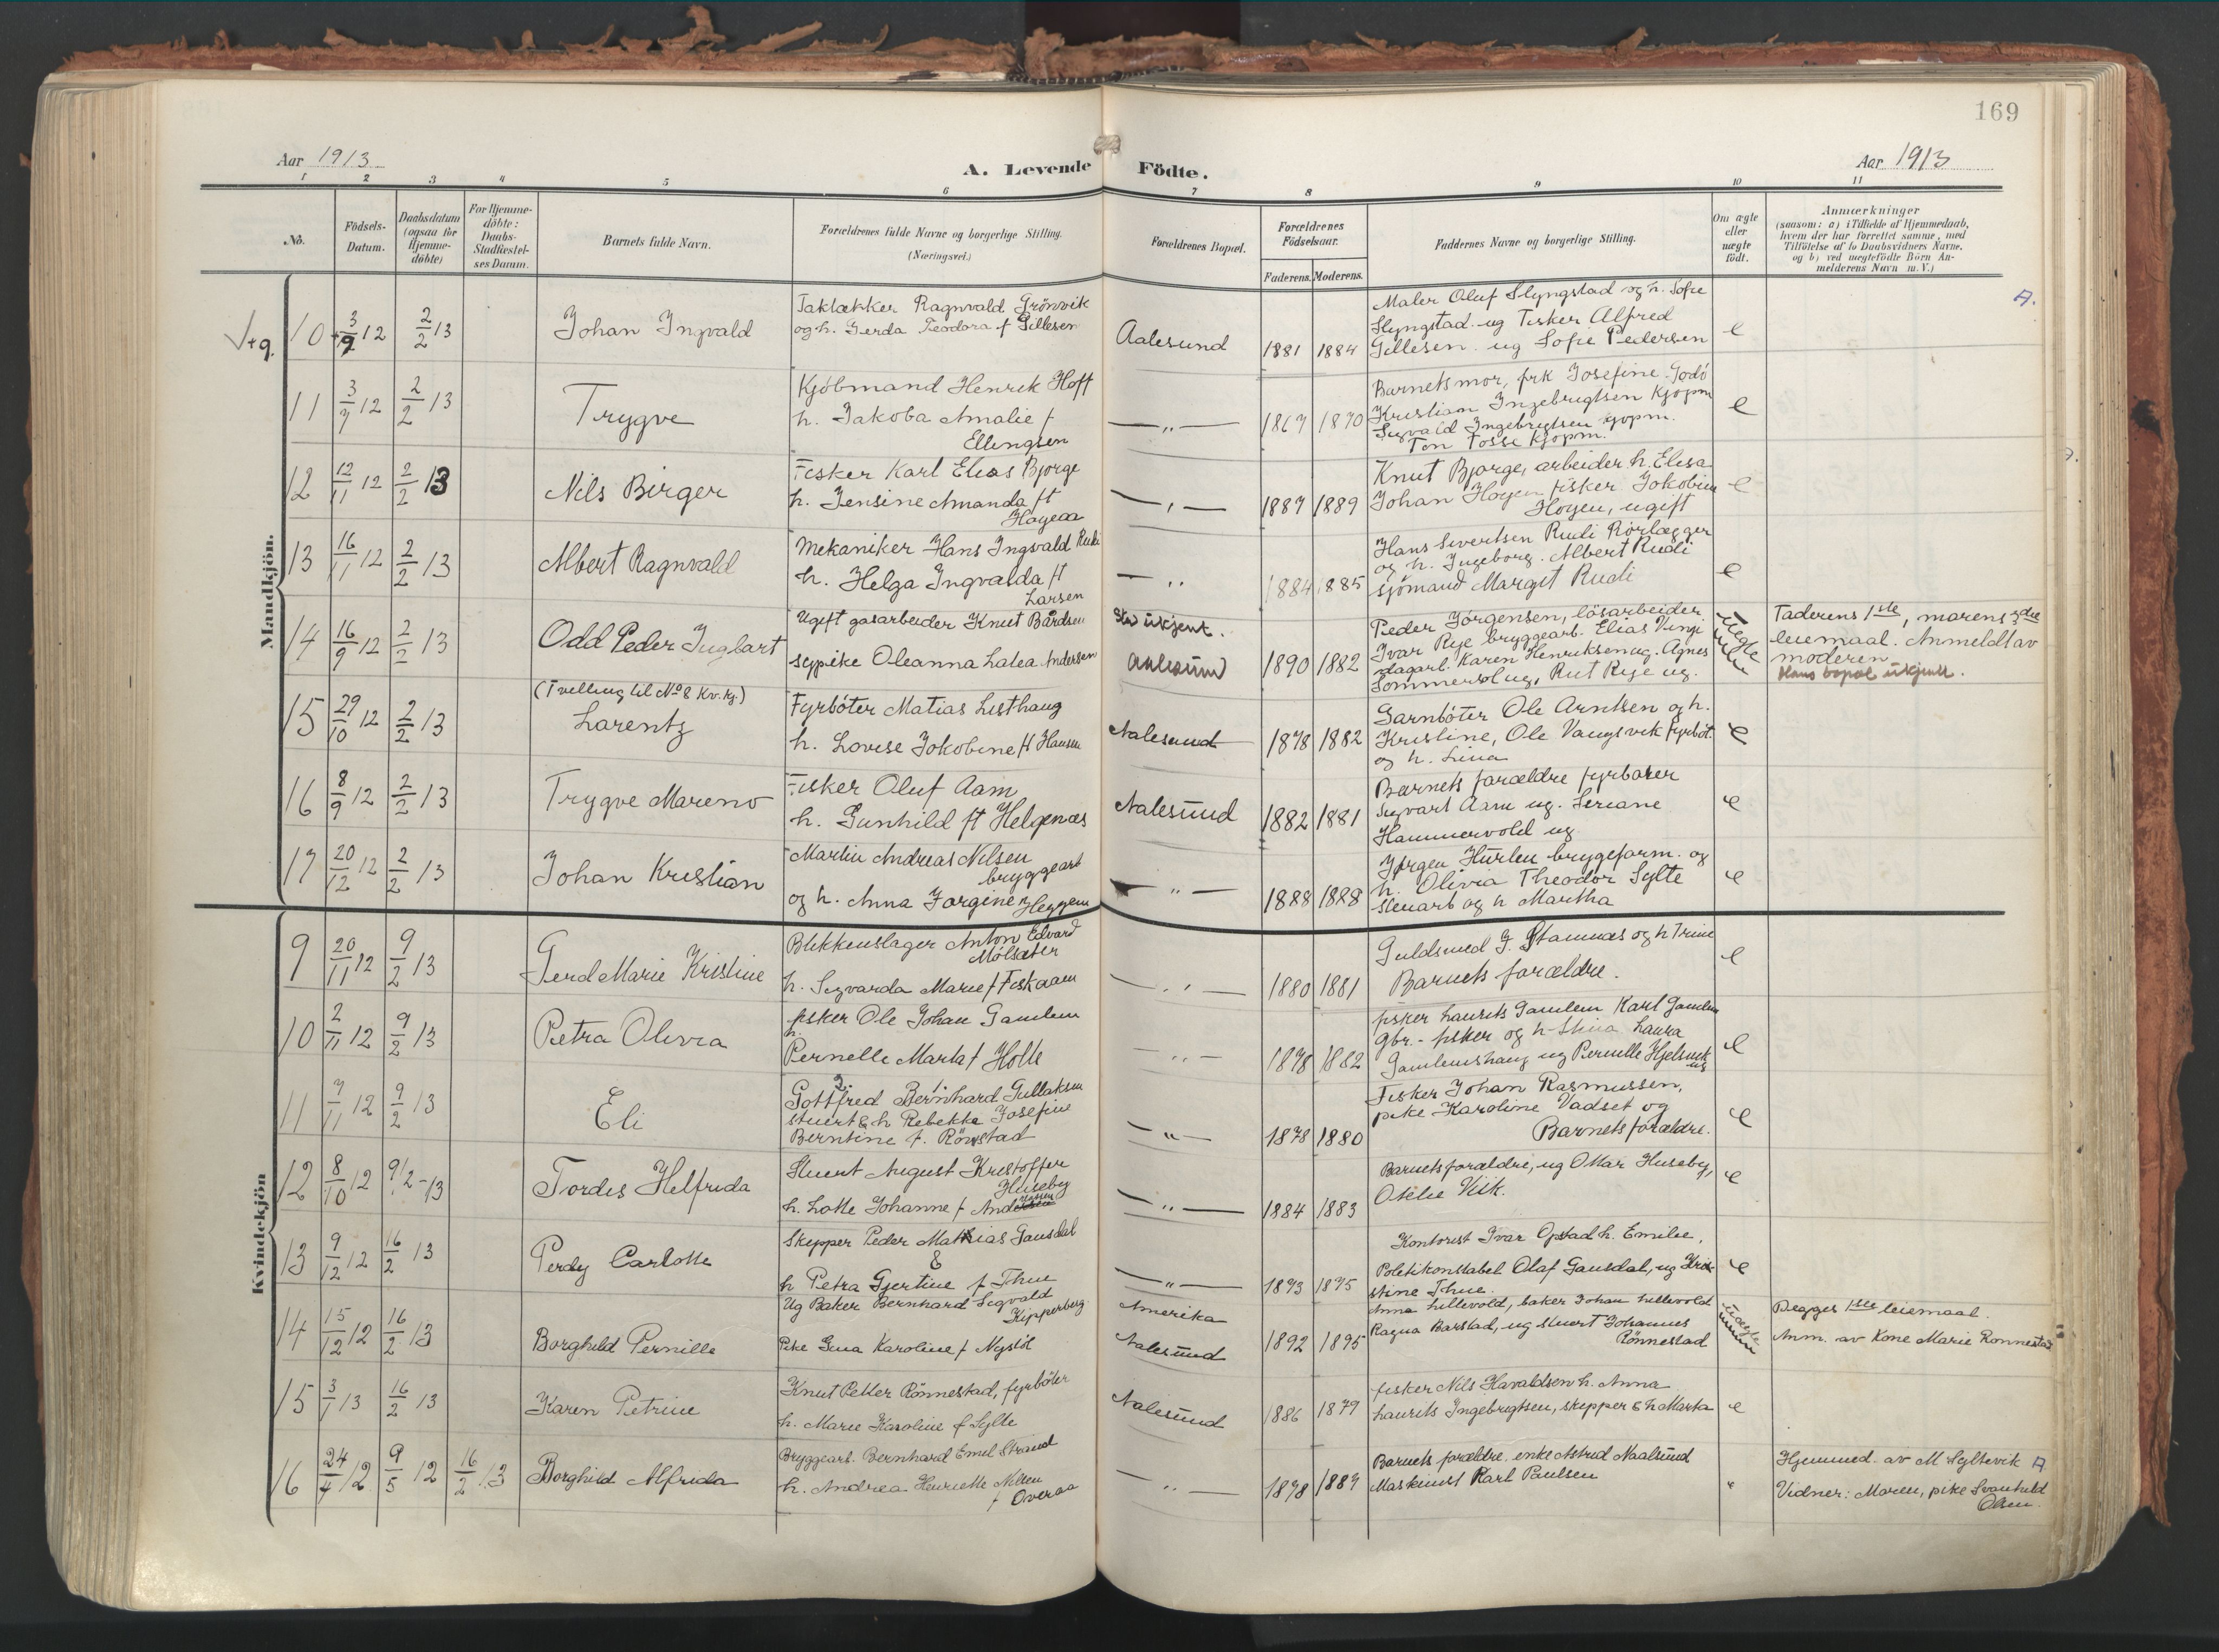 169
Aar 1913
A. Levende Födte.
Aar 1913
1 2 3 4 5 6 7 8 9 10 11
No.
Födsels-Datum.
Daabsdatum (ogsaa for Hjemme-döbte)
For Hjemme-döbte: Daabs-Stadfæstel-ses Datum.
Barnets fulde Navn.
Forældrenes fulde Navne og borgerlige Stilling.
(Næringsvei.)
Forældrenes Bopæl.
Forældrenes Födselsaar.
Faderens. Moderens.
Faddernes Navne og borgerlige Stilling.
Om ægte eller uægte födt.
Anmærkninger
(saasom: a) i Tilfælde af Hjemmedaab,
hvem der har forrettet samme, med
Tilföielse af to Daabsvidners Navne,
og b) ved uægtefödte Börn An-
melderens Navn m. V.)
Mandkjön.
10 12 2/2 13 Johan Ingvald
Taktækker Ragnvald Grönvik
og h. Gerda Teodora f Gillesen
Aalesund 1881 1884
Maler Oluf Slyngstad og h. Sofie
Slyngstad ug Fisker Alfred
Gillesen ug Sofie Pedersen
e
A.
11 3/7 12 2/2 13 Trygve
Kjöbmand Henrik Hoff
h. Jakoba Amalie f
Ellingsen
— „ — 1867 1870
Barnets mor, frk Josefine Godö
Kristian Ingebrigtsen Kjøpm
Sigvald Ingebrigtsen kjøpm.
Ton Fosse kjøpm.
e
12 12/11 12 2/2 13 Nils Birger
Fisker Karl Elias Bjorge
h. Jensine Amanda ft
— „ — 1887 1889
Knut Bjorge, arbeider h. Elisa
Johan Hoyen fisker Jokobine
Hoyen, ugift
e
13 16/11 12 2/2 13 Albert Ragnvald
Mekaniker Hans Ingvald Rudi
h. Helga Ingvalda ft
Larsen
— „ 1884 1885
Hans Sivertsen Rudi Rörlægger
og h. Ingeborg. Albert Rudi
sjömand Margit Rudi
e
14 16/9 12 2/2 13 Odd Peder Ingbart
Ugift gasarbeider Knut Bårdsen
pike Oleanna Lalea Andersen
ukjent.
Aalesund 1890 1882
Peder Jörgensen, lösarbeider
Ivar Rye bryggearb. Elias Vinje
dagarb. Karen Henriksen ug. Agnes
Sommerset ug, Rut Rye ug.
Uegte
Faderens 1ste, morens 3die
leiemaal. Anmeldt av
moderen
Hans bopæl ukjent.
15 29/10 12 2/2 13
(Tvelling til No 8 Kv.kj.)
Larentz
Fyrböter Matias Listhaug
h. Lovise Jokobine ft Hansen
Aalesund 1878 1882
Garnböter Ole Arntsen og h.
Kristine, Ole Vaagsvik fyrböt.
og h. Lina
e
16 8/9 12 2/2 13 Trygve Mareno
Fisker Oluf Aam
h. Gunhild ft Helgenæs
Aalesund 1882 1881
Barnets forældre fyrbøter
Sigvart Aam ug. Seriane
Hammervold ug
e
17 20/12 12 2/2 13 Johan Kristian
Martin Andreas Nilsen
bryggearb
og h. Anna Jorgine f Heggem
— „ — 1888 1888
Jørgen Hurlen bryggeform. og
h. Olivia Theodor Sylte
stuearb og h Martha
e
Kvindekjön
9 20/11 12 9/2 13 Gerd Marie Kristine
Blikkenslager Anton Edvard
Mölsæter
h. Sigvarda Marie f Fiskaaen
— „ — 1880 1881
Guldsmed J. Stamnæs og h Trine
Barnets forældre.
e
10 2/11 12 9/2 13 Petra Olivia
fisker Ole Johan Gamlem
h.
Pernelle Marta f Holte
— „ — 1878 1882
fisker Laurits Gamlem Karl Gamlem
gbr.- fisker og h Stina Laura
Gamlemshaug ug Pernelle Hjelsvik
ug
e
11 7/11 12 9/2 13 Eli
Gottfred Bernhard Gullaksen
stuert & h Rebekka Josefine
Berntine f. Rönstad
— „ — 1878 1880
Fisker Johan Rasmussen,
pike Karoline Vadset og
Barnets forældre.
e
12 8/10 12 9/2-13 Tordis Helfrida
Stuert August Kristoffer
Huseby
h. Lotte Johanne f Andersen
— „ — 1884 1883
Barnets forældre, ug Ottar Huseby,
Otelie Viik.
e
13 9/12 12 16/2 13 Perdy Carlotte
Skipper Peder Mathias Gausdal
&
h Petra Gjertine f Thue
— „ — 1893 1895
Kontorist Ivar Opstad h. Emilie,
Politikonstabel Olaf Gausdal, ug Kri-
stine Thue.
e
14 15/12 12 16/2 13 Borghild Pernille
Ug Baker Bernhard Sigvald
Kipperberg
Pike Gina Karoline f Nystöl
Amerika
Aalesund 1892 1895
Anna Lillevold, baker Johan Lillevold
Ragna Barstad, ug stuert Johannes
Rönnestad
Uægte
Begges 1ste leiemaal.
Anm. av Kone Marie Ronnestad
15 3/1 13 16/2 13 Karen Petrine
Knut Petter Rönnestad, fyrböter
h. Marie Karoline f Sylte
Aalesund 1886 1879
fisker Nils Havaldsen h. Anna
Laurits Ingebrigtsen, skipper & h Marta
e
16 24/4 12 9/5 12 16/2 13 Borghild Alfrida
Bryggearb. Bernhard Emil Strand
h. Andrea Henriette Nilsen
f Overaa
— „ — 1878 1889
Barnets forældre. enke Astrid Naalsund
Maskinist Karl Paulsen
Hjemmed. av M Syltevik A
Vidner: Maren, pike Svanhild
Olsen.